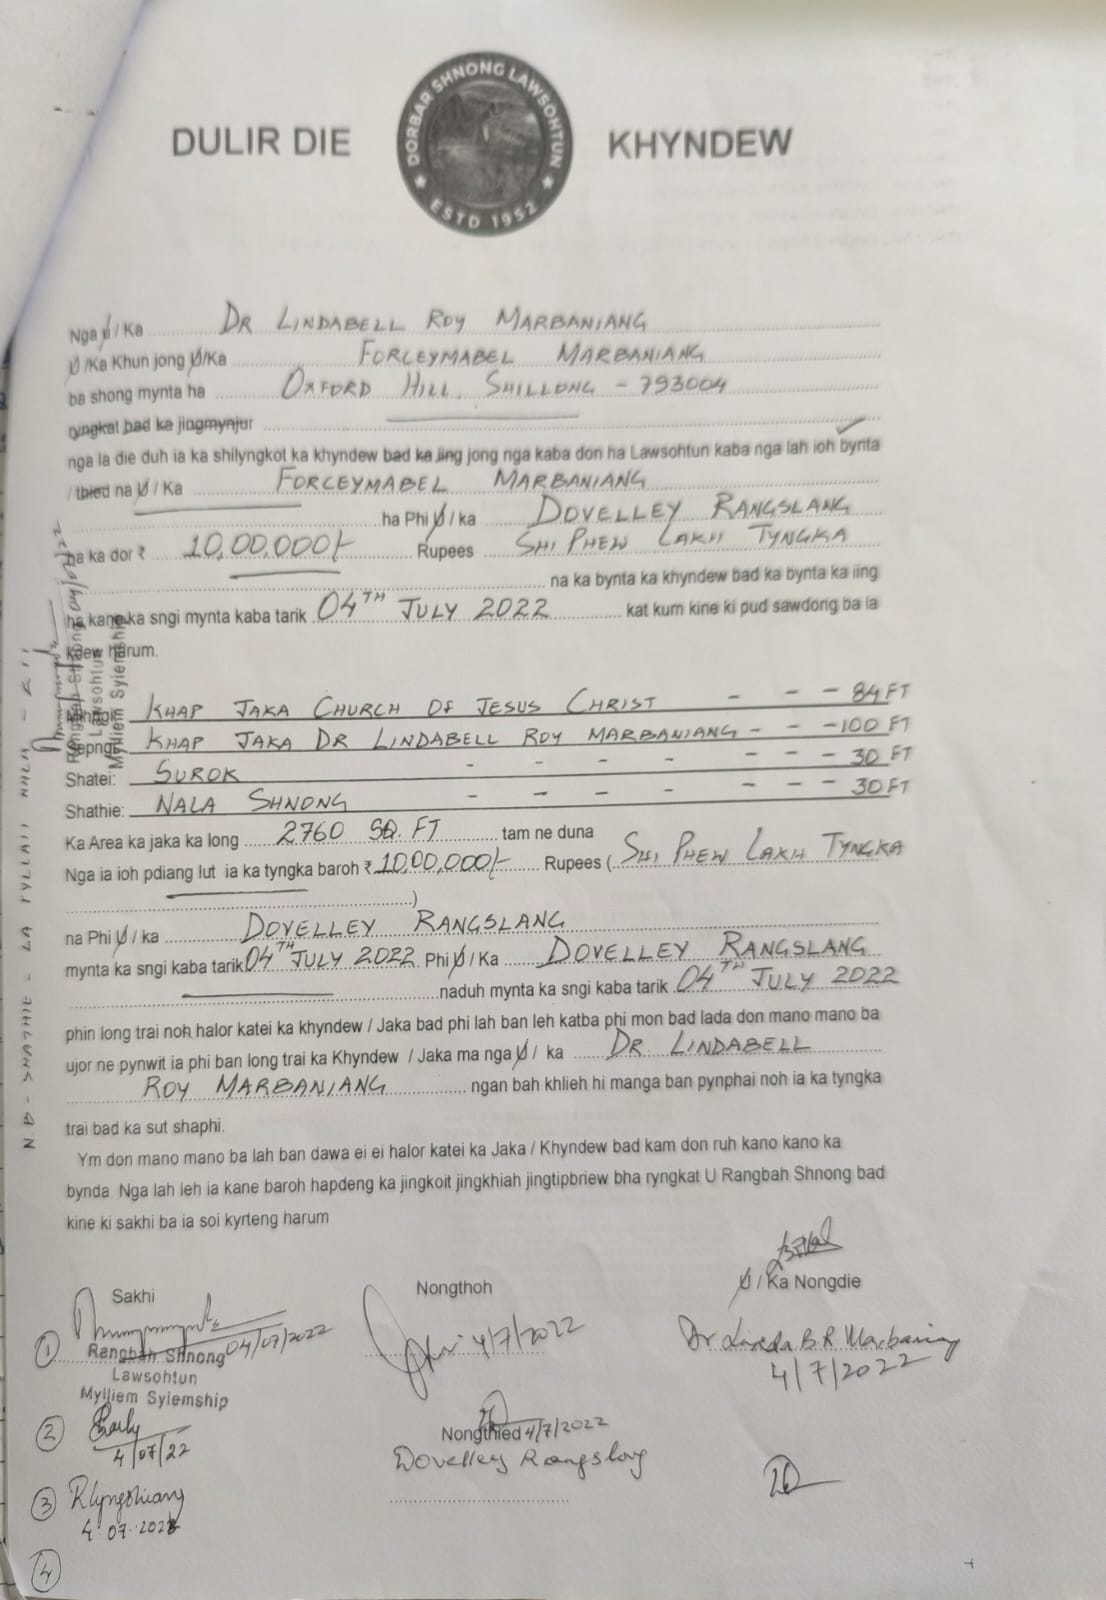 DORBAR SHNONG LAWSOHTUN
ESTD 1952
DULIR DIE KHYNDEW
Nga U / Ka DR LINDABELL ROY MARBANIANG
U /Ka Khun jong U/Ka FORCEYMABEL MARBANIANG
ba shong mynta ha OXFORD HILL, SHILLONG - 793004
ryngkat bad ka jingmynjur
nga la die duh ia ka shilyngkot ka khyndew bad ka iing jong nga kaba don ha Lawsohtun kaba nga lah ioh bynta
/ thied na U / Ka FORCEYMABEL MARBANIANG
ha Phi U / ka DOVELLEY RANGSLANG
ha ka dor ₹ 10,00,000/- Rupees SHI PHEW LAKH TYNGKA
na ka bynta ka khyndew bad ka bynta ka iing
ha kane ka sngi mynta kaba tarik 04TH JULY 2022 kat kum kine ki pud sawdong ba la
kdew harum.
Mihngi: KHAP JAKA CHURCH OF JESUS CHRIST - - - 84 FT
Sepngi: KHAP JAKA DR LINDABELL ROY MARBANIANG - - - 100 FT
Shatei: SUROK - - - - - - - 30 FT
Shathie: NALA SHNONG - - - - - - - 30 FT
Ka Area ka jaka ka long 2760 SQ. FT tam ne duna
Nga ia ioh pdiang lut ia ka tyngka baroh ₹ 10,00,000/- Rupees ( SHI PHEW LAKH TYNGKA
)
na Phi U / ka DOVELLEY RANGSLANG
mynta ka sngi kaba tarik 04TH JULY 2022 Phi U / Ka DOVELLEY RANGSLANG
naduh mynta ka sngi kaba tarik 04TH JULY 2022
phin long trai noh halor katei ka khyndew / Jaka bad phi lah ban leh katba phi mon bad lada don mano mano ba
ujor ne pynwit ia phi ban long trai ka Khyndew / Jaka ma nga U / ka DR LINDABELL
ROY MARBANIANG ngan bah khlieh hi manga ban pynphai noh ia ka tyngka
trai bad ka sut shaphi.
Ym don mano mano ba lah ban dawa ei ei halor katei ka Jaka / Khyndew bad kam don ruh kano kano ka
bynda. Nga lah leh ia kane baroh hapdeng ka jingkoit jingkhiah jingtipbriew bha ryngkat U Rangbah Shnong bad
kine ki sakhi ba ia soi kyrteng harum
NB - SHATHIE - LA TYLLAII NALA
Rangbah Shnong 04/07/2022
Lawsohtun
Mylliem Syiemship
Sakhi
1
04/07/2022
Rangbah Shnong
Lawsohtun
Mylliem Syiemship
2
4/07/22
3 RLyngkhiang
4.07.2022
4
Nongthoh
4/7/2022
Nongthied 4/7/2022
Dovelley Rangslang
U / Ka Nongdie
Dr Linda B.R. Marbaniang
4/7/2022